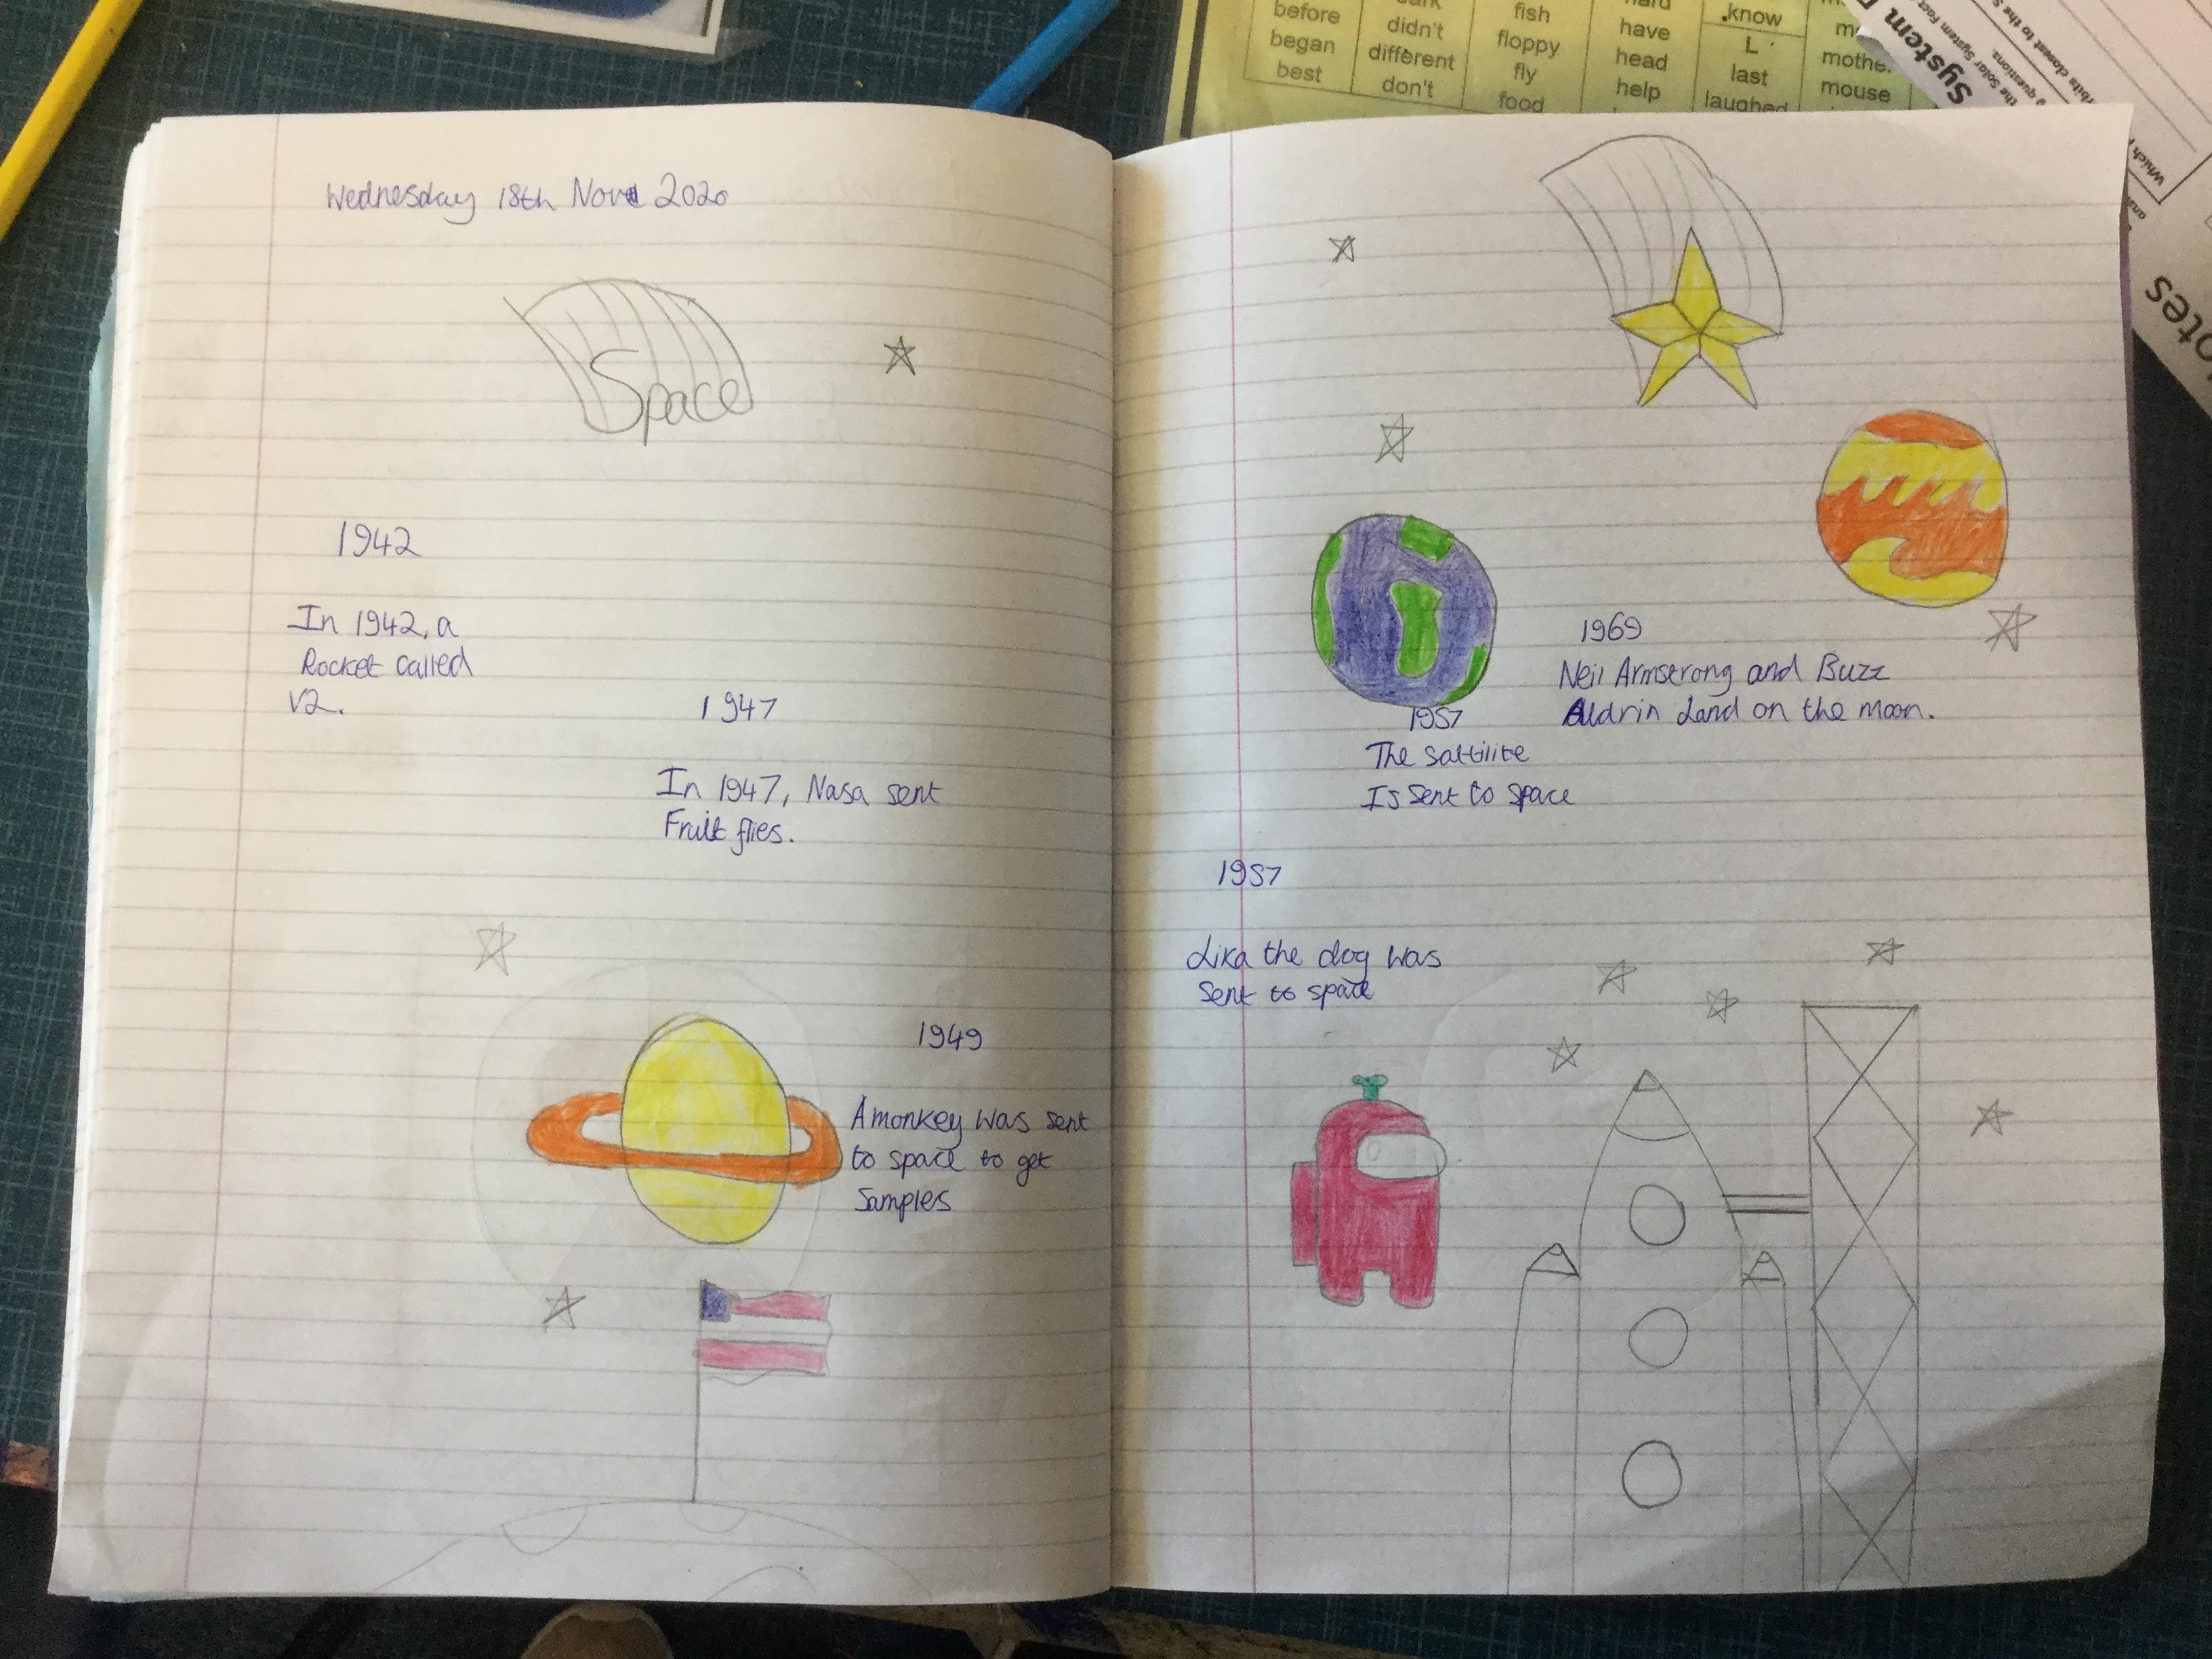 before
began
best
didn't
different
don't
fish
floppy
fly
food
have
head
help
know
L
last
laughed
mouse
System
Wednesday 18th Nov 2020
Space
1942
In 1942, a
Rocket called
V2.
1947
In 1947, Nasa sent
Fruit flies.
1949
A monkey was sent
to space to get
Samples
1969
Neil Armstrong and Buzz
Aldrin Land on the moon.
1957
The sattilite
Is sent to space
1957
Lika the dog was
Sent to space